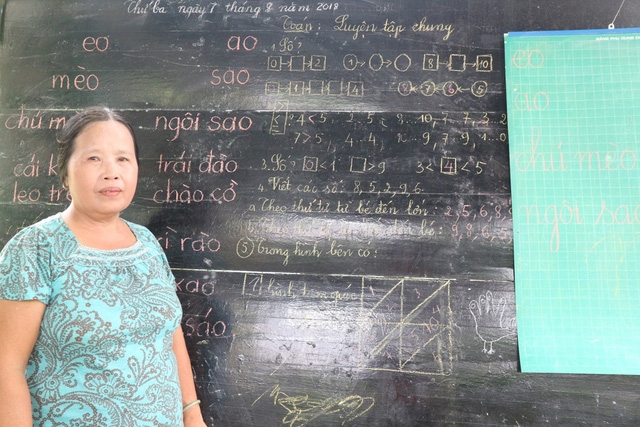 Thứ ba ngày 7 tháng 8 năm 2018
eo ao
mèo sao
chú m
ngôi sao
cái k
trái đào
leo tr
chào cờ
rì rào
kao
sáo
Toán: Luyện tập chung
1 Số?
0 2 1 8 10
0 1 4 7 6 5
4 < 5 2 5 8 10 7 7 3 2
7 > 5 4 4 10 9 7 9 1 0
3. Số? 0 < 1 > 9 3 < 4 < 5
4. Viết các số: 8, 5, 2, 9, 6.
a. Theo thứ tự từ bé đến lớn: 2, 5, 6, 8
5 Trong hình bên có:
eo
ao
chú mèo
ngôi sao